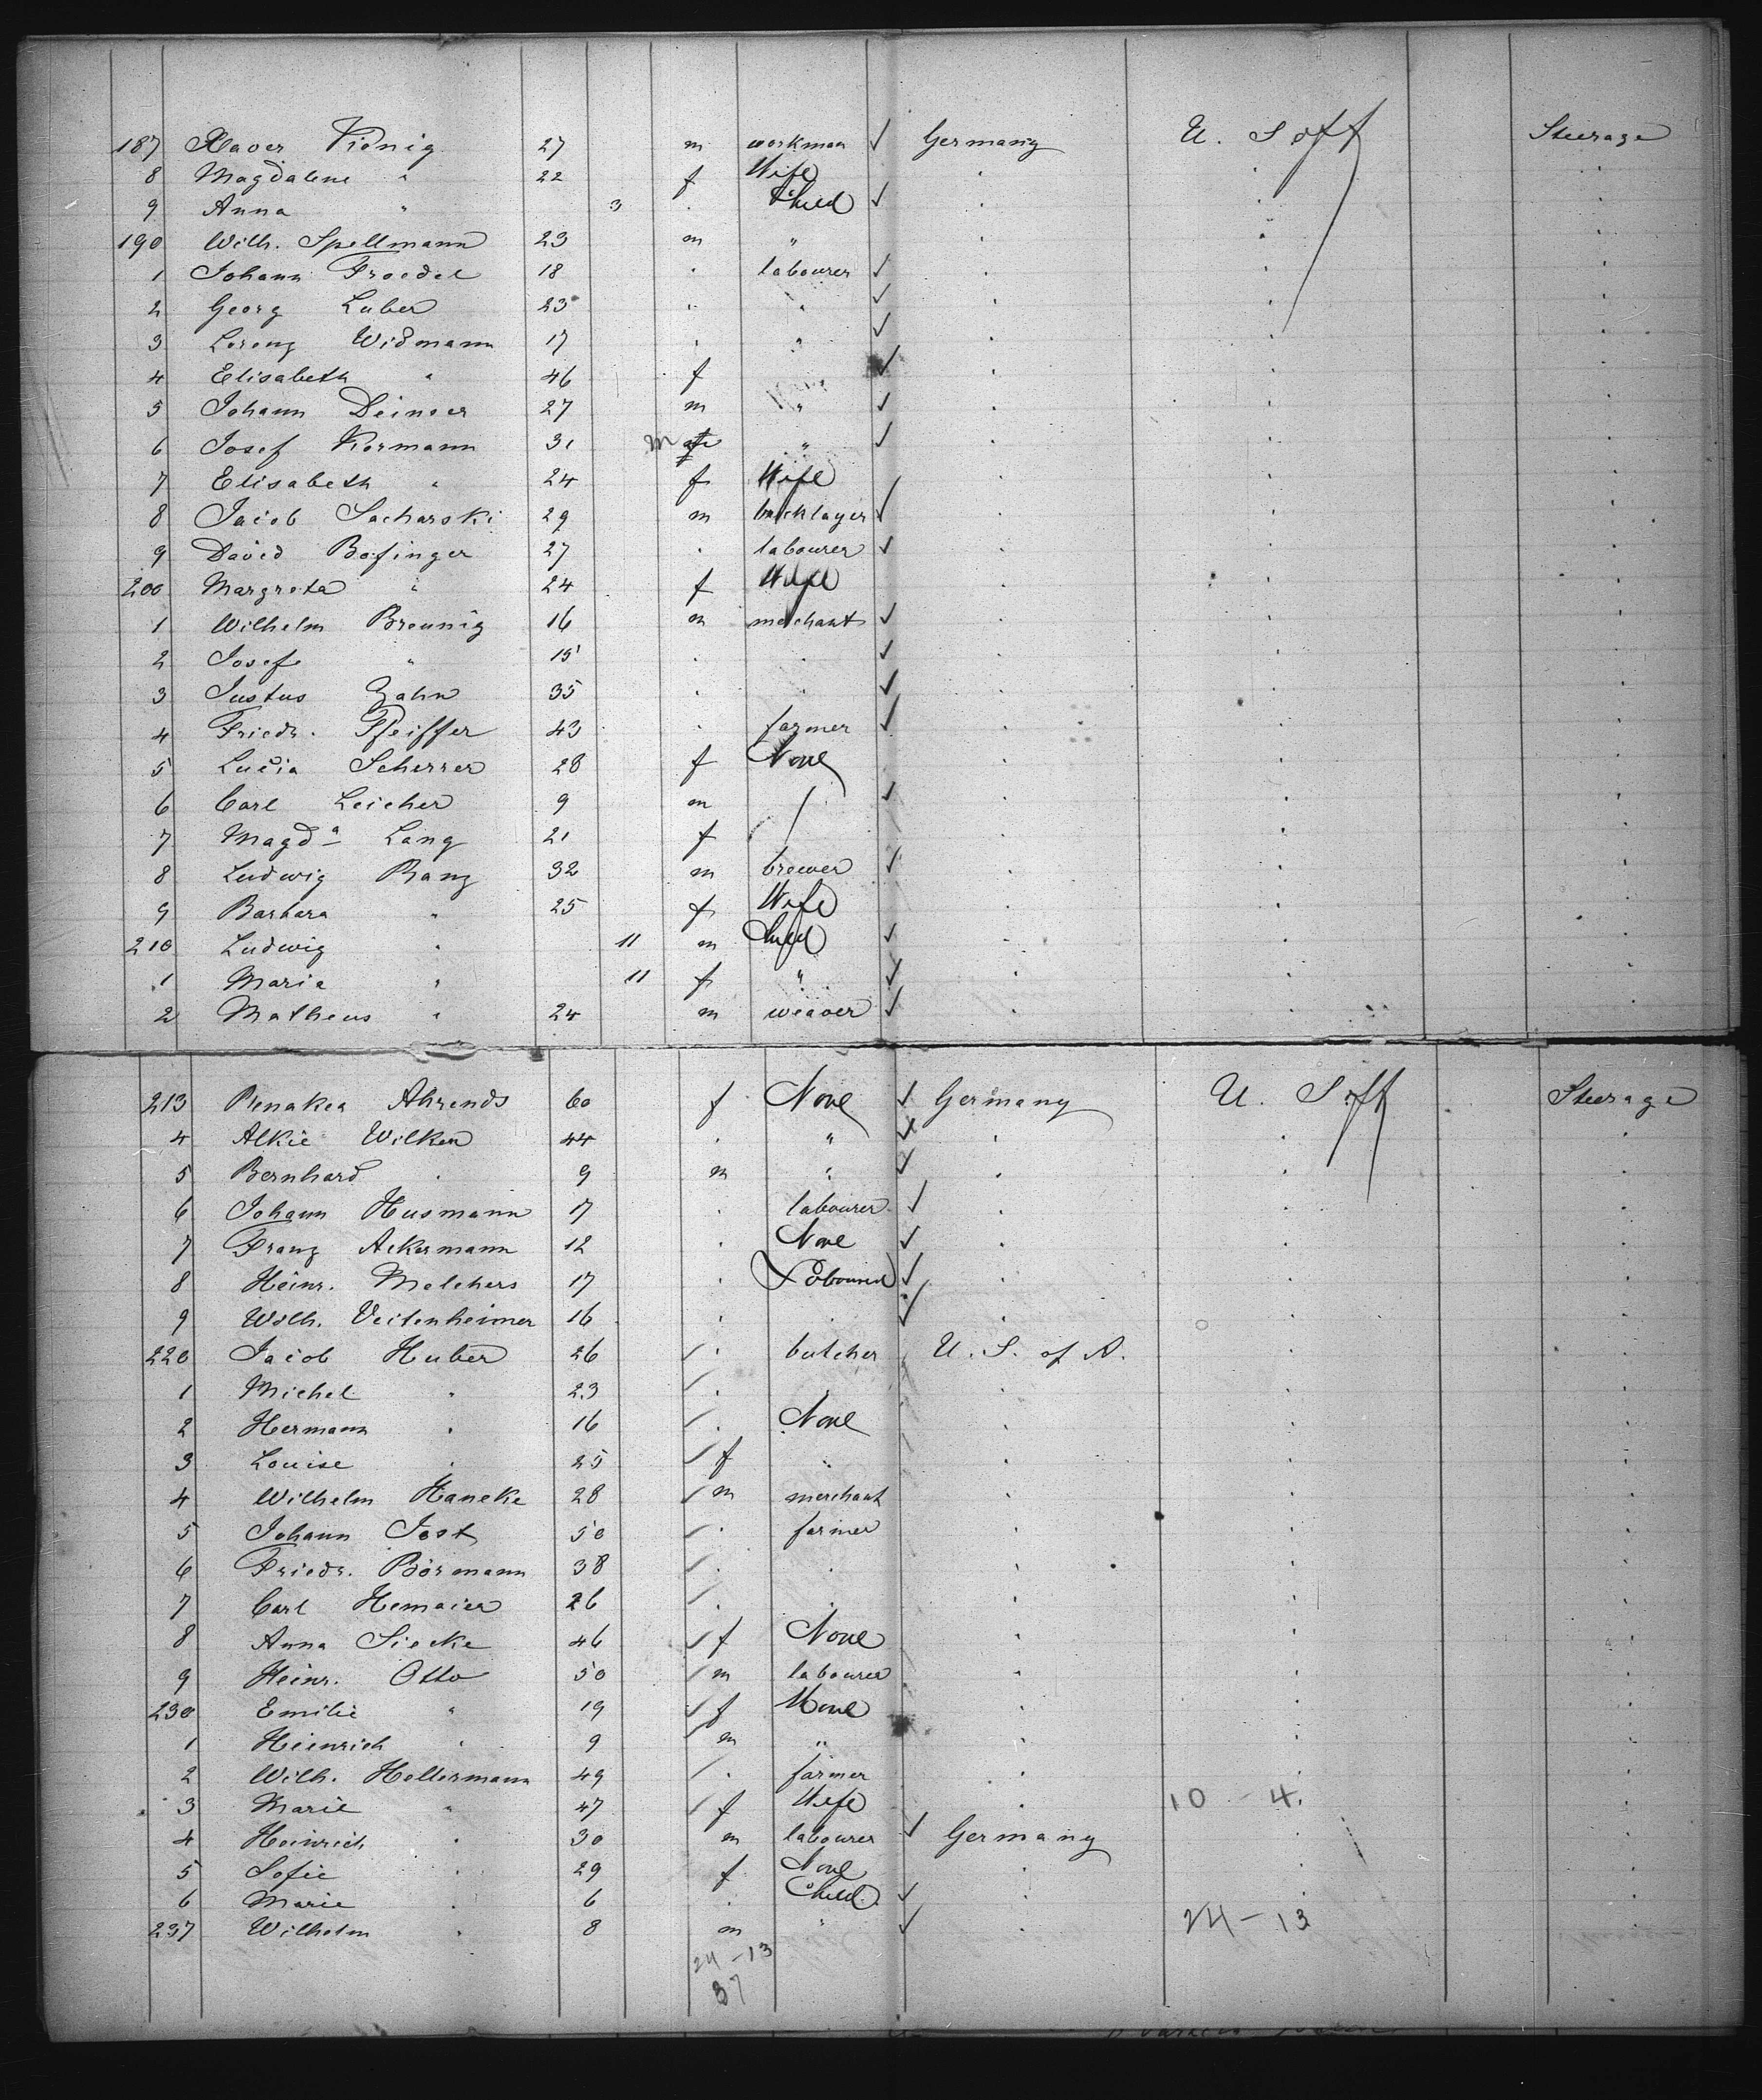 187 Xaver König 27 m workman ✓ Germany U. S of A Steerage
8 Magdalene " 22 f Wife
9 Anna " 3 . Child ✓
190 Wilh. Spellmann 23 m "
1 Johann Froedel 18 . labourer ✓
2 Georg Luber 23 . " ✓
3 Lorenz Widmann 17 . " ✓
4 Elisabeth " 46 f ✓
5 Johann Deinoer 27 m " ✓
6 Josef Kormann 31 m " ✓
7 Elisabeth " 24 f Wife
8 Jacob Sacharski 29 m bricklayer ✓
9 David Bofinger 27 . labourer ✓
200 Margreta " 24 f Wife
1 Wilhelm Breunig 16 m merchant ✓
2 Josef " 15 . . ✓
3 Justus Zahn 35 . . ✓
4 Friedr. Pfeiffer 43 . farmer ✓
5 Lucia Scherrer 28 f None
6 Carl Leicher 9 m ✓
7 Magda Lang 21 f
8 Ludwig Banz 32 m brewer ✓
9 Barbara " 25 f Wife
210 Ludwig " 11 m Child ✓
1 Maria " 11 f " ✓
2 Matheus " 24 m weaver ✓
213 Renakea Ahrends 60 f None ✓ Germany U. S. of A Steerage
4 Alkie Wilken 44 . " ✓
5 Bernhard " 9 m " ✓
6 Johann Husmann 17 . labourer ✓
7 Franz Ackermann 12 . None ✓
8 Heinr. Melchers 17 . Labourer ✓
9 Wilh. Veitenheimer 16 . . ✓
220 Jacob Huber 26 . butcher U. S. of A.
1 Michel " 23 . .
2 Hermann " 16 . None
3 Louise " 25 f "
4 Wilhelm Haneke 28 m merchant
5 Johann Jost 50 . farmer
6 Friedr. Börmann 38 . .
7 Carl Hemaier 26 . .
8 Anna Siecke 46 f None
9 Heinr. Otto 50 m labourer
230 Emilie " 19 f None
1 Heinrich " 9 m "
2 Wilh. Hollermann 49 . farmer
3 Marie " 47 f Wife 10 - 4.
4 Heinrich " 30 m labourer ✓ Germany
5 Sofie " 29 f None
6 Marie " 6 . Child ✓
237 Wilhelm " 8 m " ✓ 24 - 13
24 - 13
37